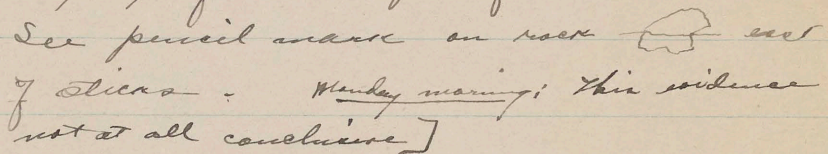 See pencil mark on rock east
of sticks. Monday morning; this evidence
not at all conclusive]